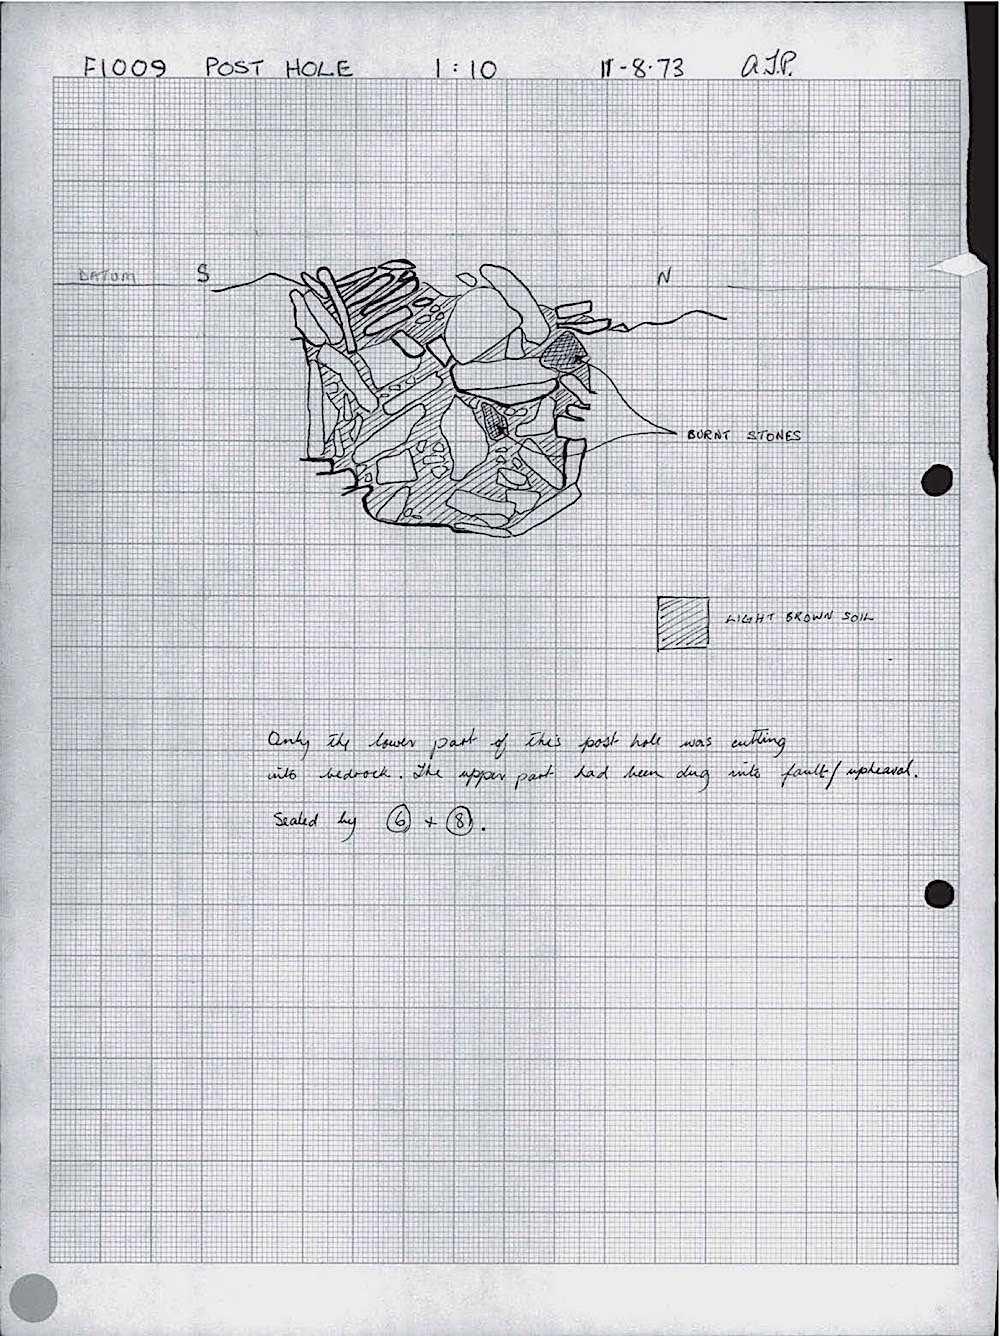 F1009 POST HOLE 1:10 11-8-73 A.J.P.
DATUM S N
BURNT STONES
LIGHT BROWN SOIL
Only the lower part of this post hole was cutting
into bedrock. The upper part had been dug into fault/upheaval.
Sealed by 6 + 8.